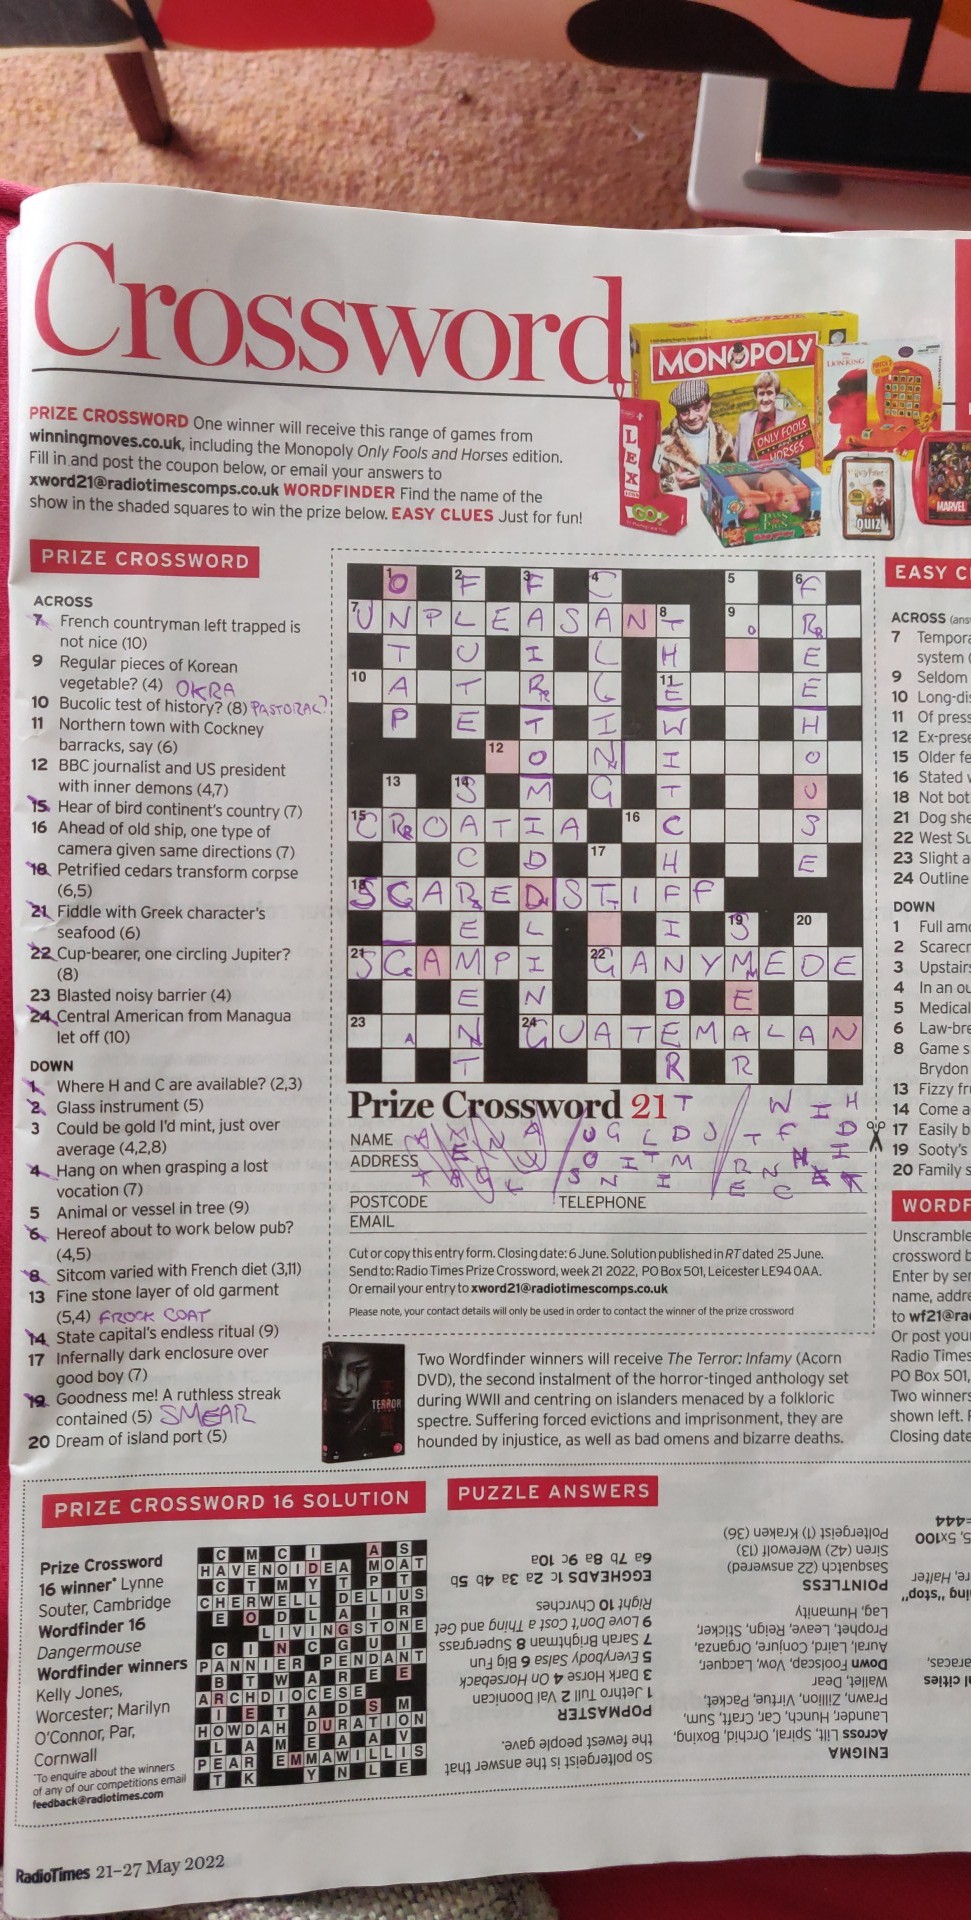 Crossword
PRIZE CROSSWORD One winner will receive this range of games from
winningmoves.co.uk, including the Monopoly Only Fools and Horses edition.
Fill in and post the coupon below, or email your answers to
xword21@radiotimescomps.co.uk WORDFINDER Find the name of the
show in the shaded squares to win the prize below. EASY CLUES Just for fun!
MONOPOLY
ONLY FOOLS
AND
HORSES
THE LION KING
LEX
GO!
PASS THE PIGS
Harry Potter
QUIZ
MARVEL
PRIZE CROSSWORD
ACROSS
7 French countryman left trapped is
not nice (10)
9 Regular pieces of Korean
vegetable? (4) OKRA
10 Bucolic test of history? (8) PASTORAL?
11 Northern town with Cockney
barracks, say (6)
12 BBC journalist and US president
with inner demons (4,7)
15 Hear of bird continent's country (7)
16 Ahead of old ship, one type of
camera given same directions (7)
18 Petrified cedars transform corpse
(6,5)
21 Fiddle with Greek character's
seafood (6)
22 Cup-bearer, one circling Jupiter?
(8)
23 Blasted noisy barrier (4)
24 Central American from Managua
let off (10)
DOWN
1 Where H and C are available? (2,3)
2 Glass instrument (5)
3 Could be gold I'd mint, just over
average (4,2,8)
4 Hang on when grasping a lost
vocation (7)
5 Animal or vessel in tree (9)
6 Hereof about to work below pub?
(4,5)
8 Sitcom varied with French diet (3,11)
13 Fine stone layer of old garment
(5,4) FROCK COAT
14 State capital's endless ritual (9)
17 Infernally dark enclosure over
good boy (7)
19 Goodness me! A ruthless streak
contained (5) SMEAR
20 Dream of island port (5)
1 O 2 F 3 F 4 C 5 6 F
7 U N P L E A S A N 8 T 9 O R
T U I L H E
10 A T R L 11 E E
P E T I W H
12 O N I O
13 14 S M G T U
15 C R O A T I A 16 C S
C D 17 H E
18 S C A R E D S T I F F
E L I 19 S 20
21 S C A M P I 22 G A N Y M E D E
E N D E
23 A N 24 G U A T E M A L A N
T R R
Prize Crossword 21
NAME
ADDRESS
POSTCODE TELEPHONE
EMAIL
Cut or copy this entry form. Closing date: 6 June. Solution published in RT dated 25 June.
Send to: Radio Times Prize Crossword, week 21 2022, PO Box 501, Leicester LE94 0AA.
Or email your entry to xword21@radiotimescomps.co.uk
Please note, your contact details will only be used in order to contact the winner of the prize crossword
TERROR
Two Wordfinder winners will receive The Terror: Infamy (Acorn
DVD), the second instalment of the horror-tinged anthology set
during WWII and centring on islanders menaced by a folkloric
spectre. Suffering forced evictions and imprisonment, they are
hounded by injustice, as well as bad omens and bizarre deaths.
EASY C
ACROSS (ans
7 Tempora
system (
9 Seldom
10 Long-di
11 Of press
12 Ex-prese
15 Older fe
16 Stated v
18 Not bot
21 Dog she
22 West Su
23 Slight a
24 Outline
DOWN
1 Full am
2 Scarecr
3 Upstair
4 In an ou
5 Medical
6 Law-bre
8 Game s
Brydon
13 Fizzy fr
14 Come a
17 Easily b
19 Sooty's
20 Family s
WORDF
Unscramble
crossword b
Enter by se
name, addre
to wf21@ra
Or post your
Radio Times
PO Box 501,
Two winners
shown left. F
Closing date
PRIZE CROSSWORD 16 SOLUTION
Prize Crossword
16 winner* Lynne
Souter, Cambridge
Wordfinder 16
Dangermouse
Wordfinder winners
Kelly Jones,
Worcester; Marilyn
O'Connor, Par,
Cornwall
*To enquire about the winners
of any of our competitions email
feedback@radiotimes.com
C M C I A S
HAVENOIDEA MOAT
C T M Y T P T
CHERWELL DELIUS
E O D L A I R
LIVINGSTONE
C I N C G U I
PANNIER PENDANT
B T W A R E E
ARCHDIOCESE
I E T A D S M
HOWDAH DURATION
L A M E A A V
PEAR EMMAWILLIS
T K Y N L E
PUZZLE ANSWERS
So poltergeist is the answer that
the fewest people gave.
POPMASTER
1 Jethro Tull 2 Val Doonican
3 Dark Horse 4 On Horseback
5 Everybody Salsa 6 Big Fun
7 Sarah Brightman 8 Supergrass
9 Love Don't Cost a Thing and Get
Right 10 Chvrches
EGGHEADS 1c 2a 3a 4b 5b
6a 7b 8a 9c 10a
ENIGMA
Across Lilt, Spiral, Orchid, Boxing,
Launder, Hunch, Car, Craft, Sum,
Prawn, Zillion, Virtue, Packet,
Wallet, Dear
Down Foolscap, Vow, Lacquer,
Aural, Laird, Conjure, Organza,
Prophet, Leave, Reign, Sticker,
Lag, Humanity
POINTLESS
Sasquatch (22 answered)
Siren (42) Werewolf (13)
Poltergeist (1) Kraken (36)
5, 5x100
=444
RadioTimes 21–27 May 2022